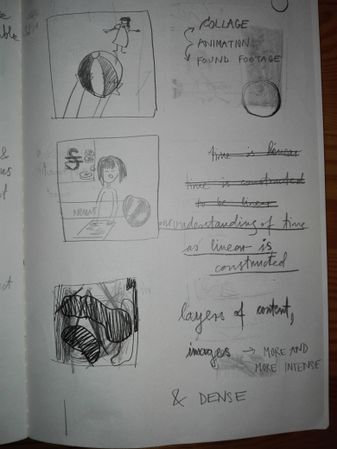 COLLAGE
ANIMATION
FOUND FOOTAGE
time is linear
time is constructed
to be linear
understanding of time
as linear is
constructed
layers of content,
images → MORE AND
MORE INTENSE
& DENSE